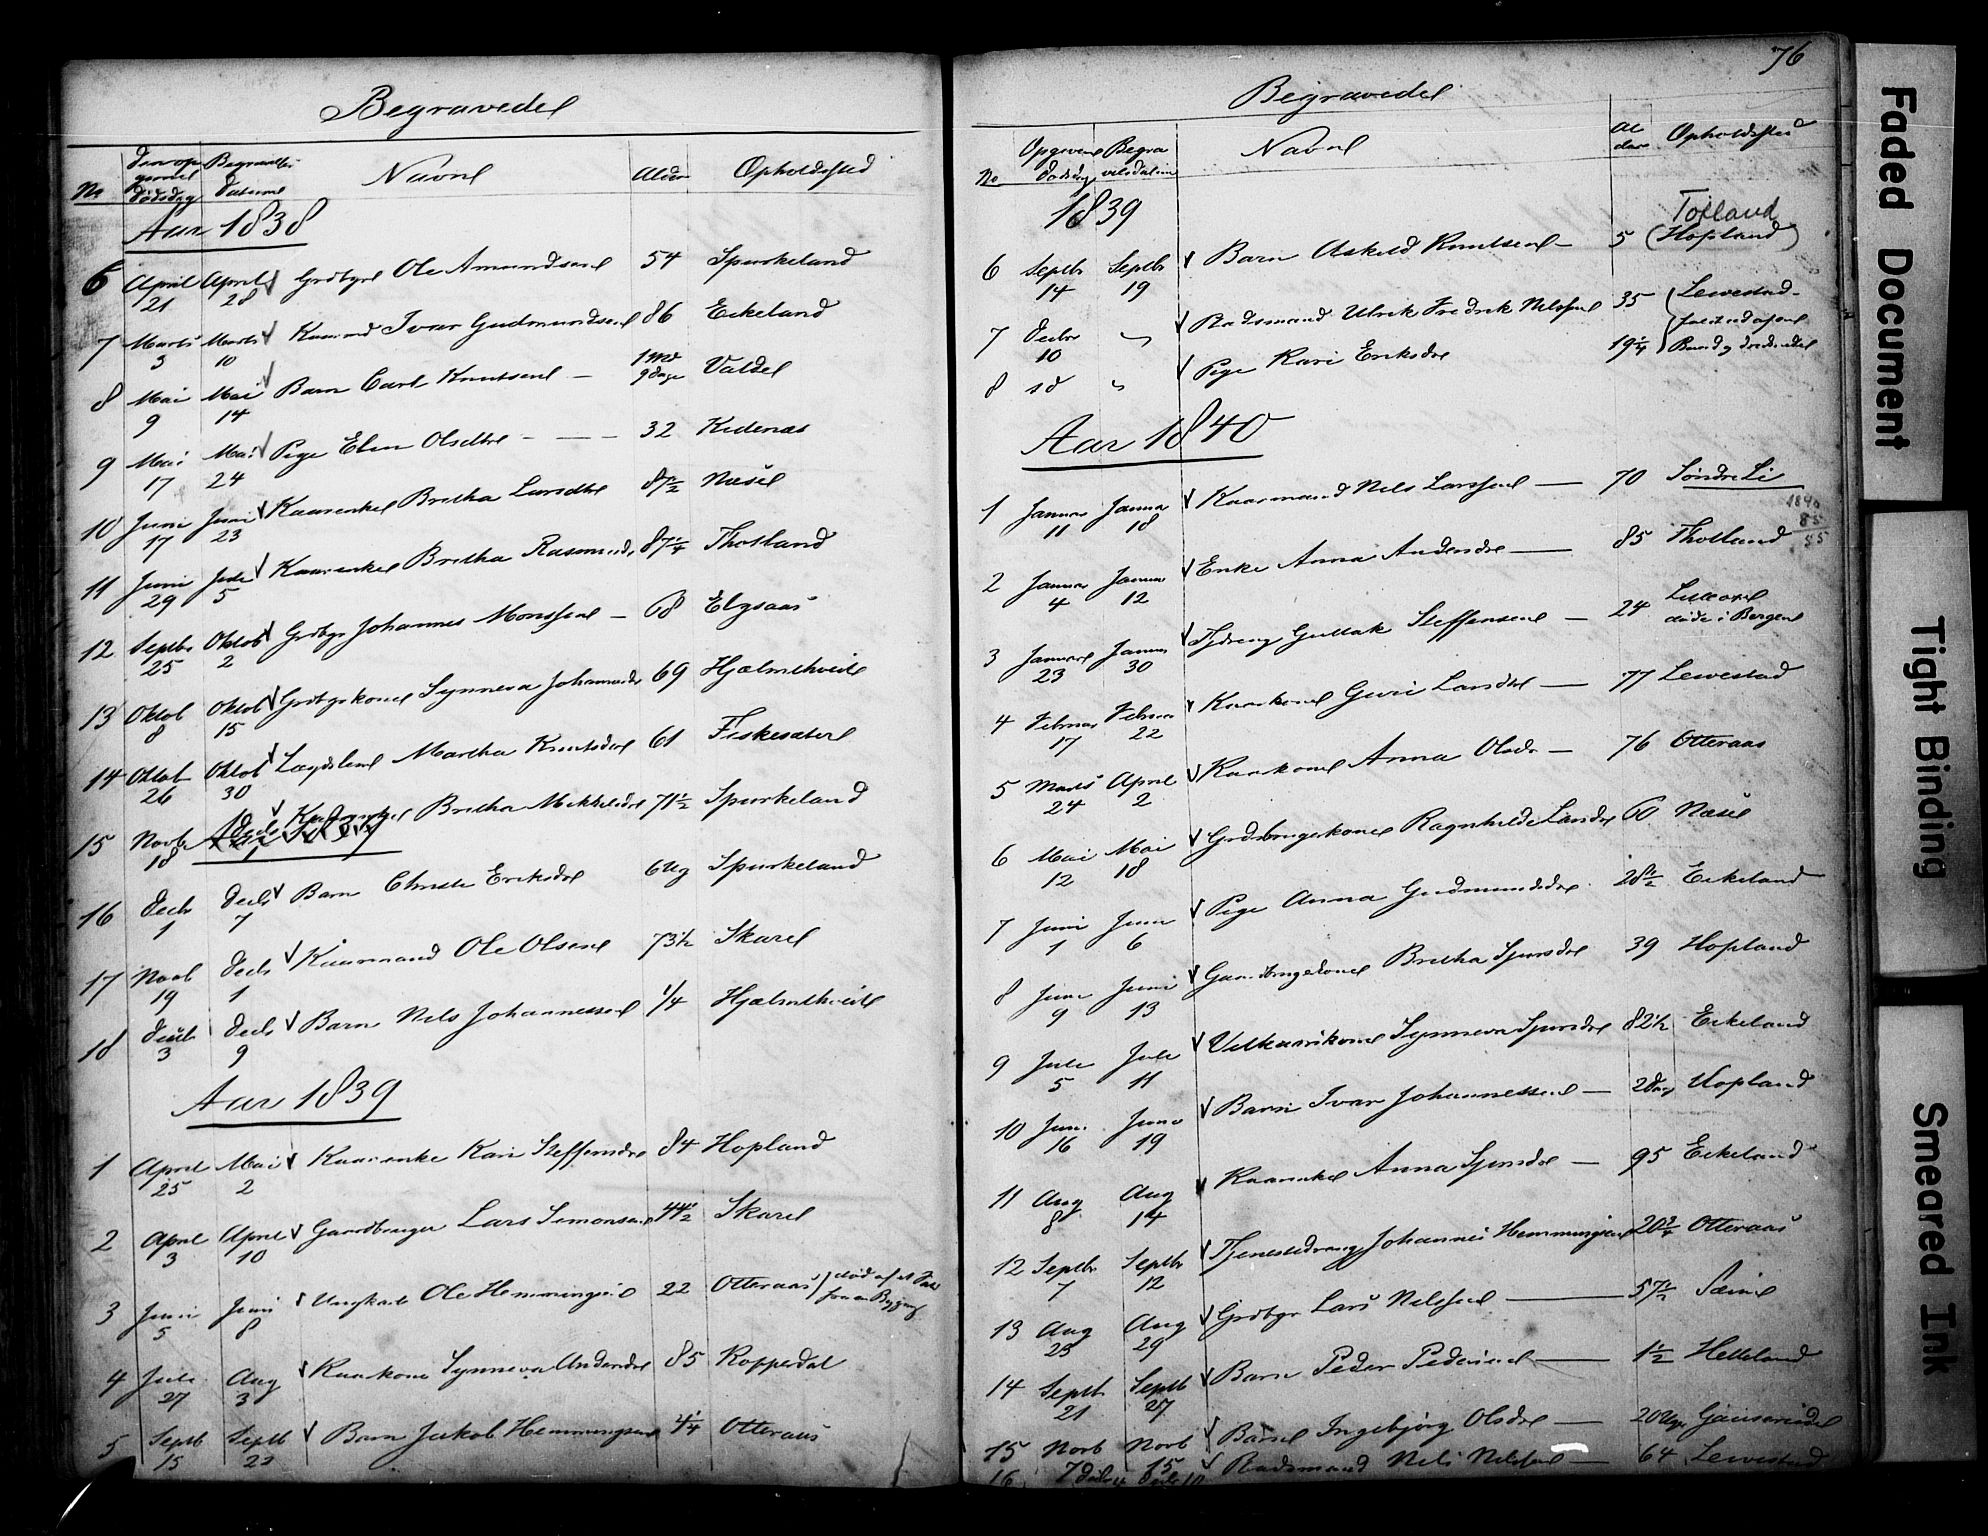 Begravede
No Den op givne dødsdag Begravelses Datum Navn Alder Opholdssted
Aar 1838
6 April 21 April 28 Grdbrgr Ole Amundsen 54 Spurkeland
7 Marts 3 Marts 10 Kaarmd Ivar Gudmundsen 86 Eikeland
8 Mai 9 Mai 14 Barn Carl Knutsen – 1 Md 9 dage Valde
9 Mai 17 Mai 24 Pige Elen Olsdtr – – – 32 Keilenæs
10 Juni 17 Juni 23 Kaarenke Britha Larsdtr 87 1/2 Næse
11 Juni 29 Jule 5 Kaarenke Britha Rasmusdr 87 1/4 Thofland
12 Septbr 25 Oktob 2 Grdbgr Johannes Monssen – 68 Elgsaas
13 Oktob 8 Oktob 15 Grdbgrkone Synneva Johannesdr 69 Hjælmtveite
14 Oktob 26 Oktob 30 Lægdslem Martha Knutsdr 61 Fiskesæter
15 Novb 18 Decb 1 Britha Mikkelsdr 71 1/2 Spurkeland
16 Decb 1 Decb 7 Barn Christi Eriksdr 6 Ug Spurkeland
17 Novb 19 Decb 1 Kaarmand Ole Olsen 73 1/2 Skare
18 Decb 3 Decb 9 Barn Nils Johannessen 1/4 Hjælmtveite
Aar 1839
1 April 25 Mai 2 Kaarenke Kari Steffensdr 84 Hopland
2 April 3 April 10 Gaardbruger Lars Simonsen 44 1/2 Skare
3 Juni 5 Juni 8 Ungkarl Ole Hemmingsen 22 Otteraas død af et Fald fra en Bygning
4 Jule 27 Aug 3 Kaarkone Synneva Andersdr 85 Kopperdal
5 Septb 15 Septb 22 Barn Jakob Hemmingsen 4 1/4 Otteraas
76
Begravede
No Opgivne dødsdag Begra velsdatum Navn Al der Opholdssted
1839
Tofland
6 Septbr 14 Septbr 19 Barn Askild Knutsen – 5 (Hopland)
7 Decbr 10 " Baadsmand Ulrik Fredrik Nilssen 35 Levestad
8 sd " Pige Kari Eriksdr 19 1/4
Aar 1840
1 Januar 11 Januar 18 Kaarmand Nils Larssen — 70 Søndre Li
1840
85
55
2 Januar 4 Januar 12 Enke Anna Andersdr — 85 Thofland
3 Januar 23 Januar 30 Tjdreng Gullak Steffensen – 24 døde i Bergen
4 Februar 17 Februar 22 Kaarkone Guri Larsdtr — 77 Levestad
5 Marts 24 April 2 Kaarkone Anna Olsdr – 76 Otteraas
6 Mai 12 Mai 18 Grdbrugerkone Ragnhilde Larsdr 60 Næse
7 Juni 1 Juni 6 Pige Anna Gudmundsdr 28 1/2 Eikeland
8 Juni 9 Juni 13 Gaardbrugerkone Britha Sjursdr 39 Hopland
9 Jule 5 Jule 11 Vilkaarskone Synneva Sjursdr 82 1/2 Eikeland
10 Juni 16 Juni 19 Barn Ivar Johannessen – 2 Dag Hopland
11 Aug 8 Aug 14 Kaarenke Anna Sjursdr – 95 Eikeland
12 Septbr 7 Septbr 12 Tjenestedreng Johannes Hemmingsen 20 3/4 Otteraas
13 Aug 23 Aug 29 Grdbgr Lars Nilssen — 57 1/2 Sæim
14 Septb 21 Septb 27 Barn Peder Pedersen — 1 1/2 Helleland
15 Novb 7 Novb 15 Barn Ingebjørg Olsdr — 20 Uger
16 Decb Decb 10 Baadsmand Nils Nilssen – 64 Levestad
Faded Document
Tight Binding
Smeared Ink